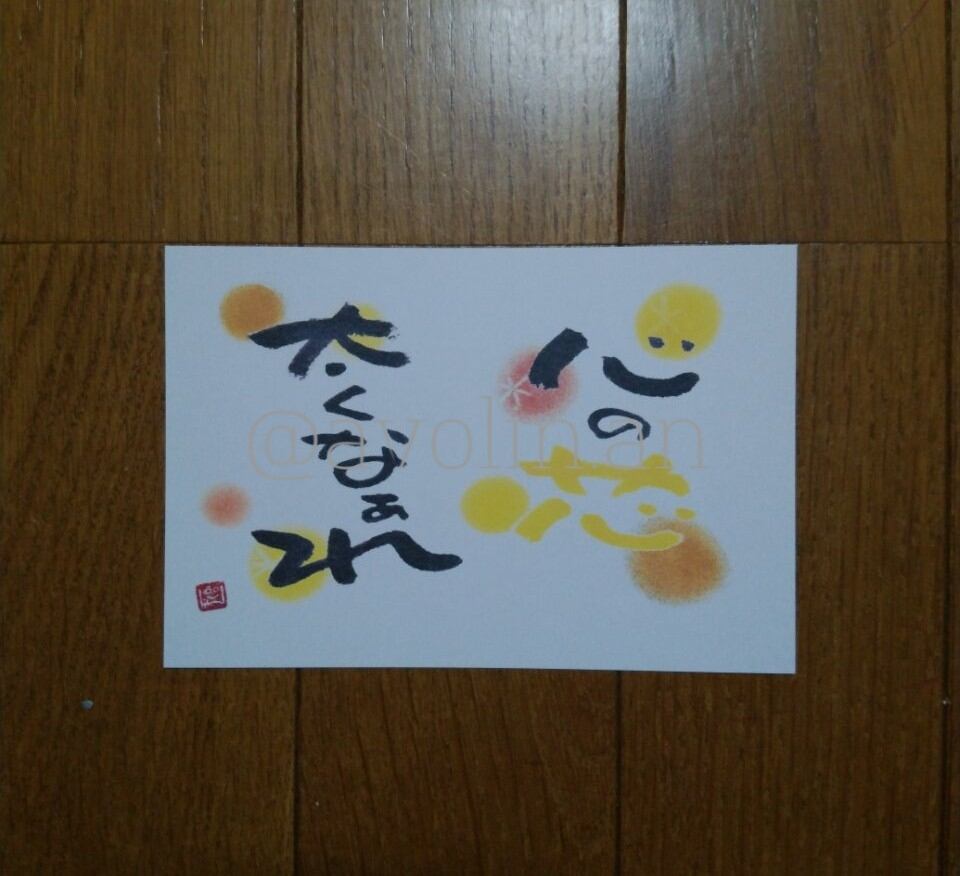 心の芯
太くなぁれ
@ayolinan